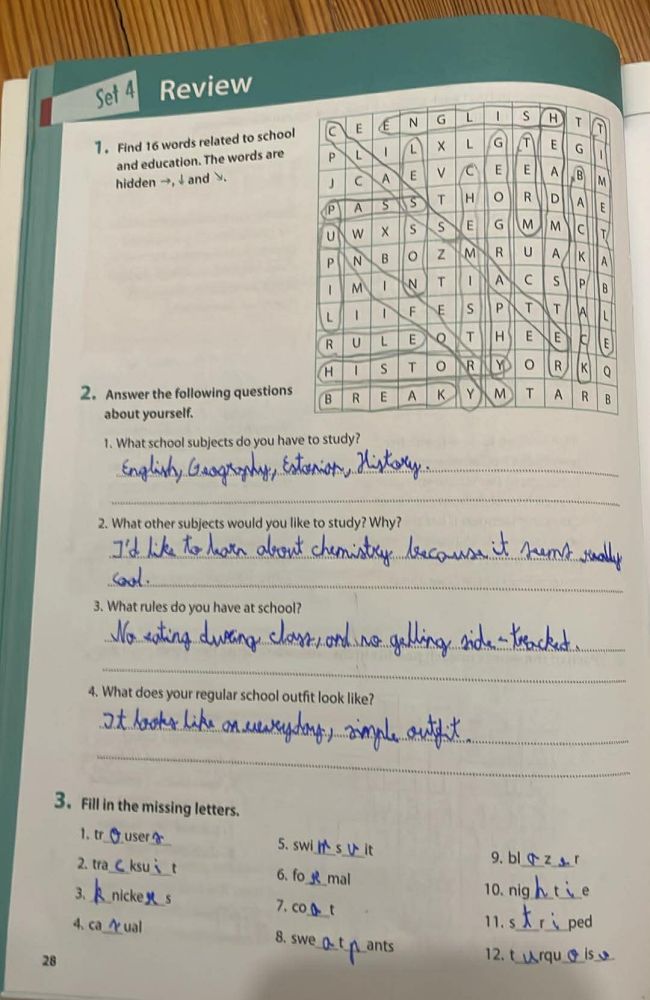 Set 4 Review
1. Find 16 words related to school
and education. The words are
hidden →, ↓ and ↘.
C E E N G L I S H T T
P L I L X L G T E G I
J C A E V C E E A B M
P A S S T H O R D A E
U W X S S E G M M C T
P N B O Z M R U A K A
I M I N T I A C S P B
L I I F E S P T T A L
R U L E O T H E E C E
H I S T O R Y O R K Q
B R E A K Y M T A R B
2. Answer the following questions
about yourself.
1. What school subjects do you have to study?
English, Geography, Estonian, History.
2. What other subjects would you like to study? Why?
I'd like to learn about chemistry because it seems really
cool.
3. What rules do you have at school?
No eating during class, and no getting side-tracked.
4. What does your regular school outfit look like?
It looks like an everyday, simple outfit.
3. Fill in the missing letters.
1. trousers
2. tracksuit
3. knickers
4. casual
5. swimsuit
6. formal
7. coat
8. sweatpants
9. blazer
10. nightie
11. striped
12. turquoise
28